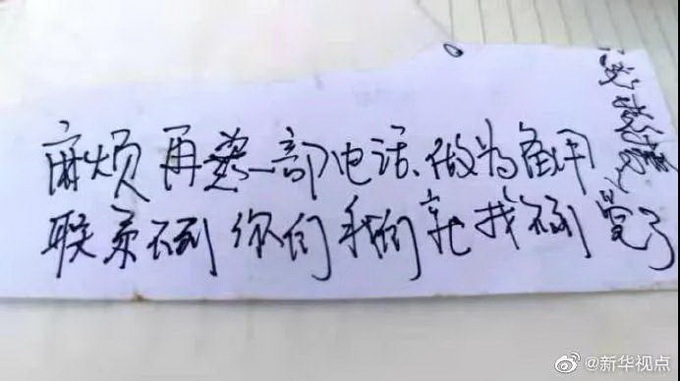 麻烦再义一部电话、做为备用
联系不到你们我们就找不到党了
@新华视点